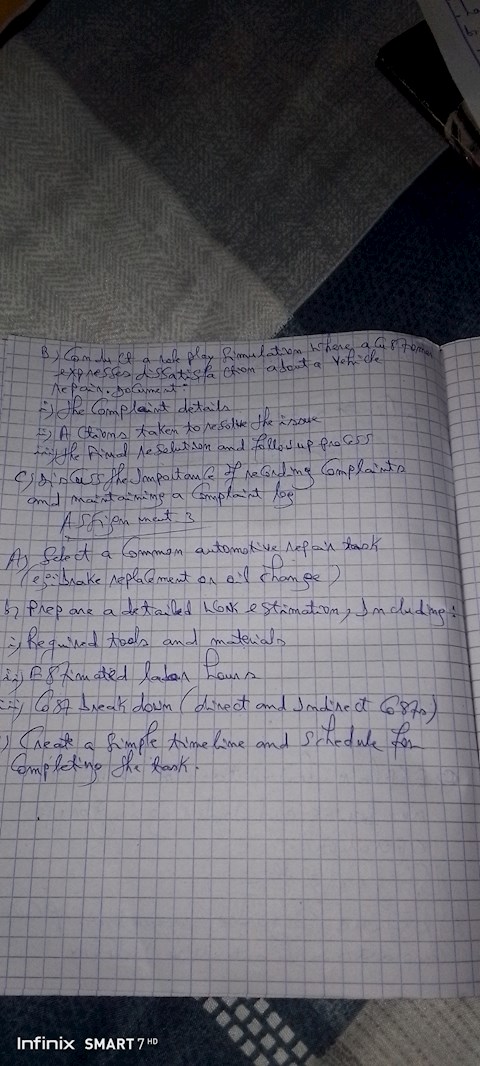 B) Conduct a role play Simulation where a Customer
expresses dissatisfaction about a vehicle
repair. Document:
i) the Complaint details
ii) Actions taken to resolve the issue
iii) the Final resolution and follow up process
C) Discuss the Importance of recording Complaints
and maintaining a Complaint log
Assignment 3
A) Select a Common automotive repair task
(eg: brake replacement or oil change)
b) Prepare a detailed work estimation, Including:
i) Required tools and materials
ii) Estimated labor hours
iii) Cost breakdown (direct and Indirect Costs)
) Create a Simple timeline and schedule for
Completing the task.
Infinix SMART 7 HD